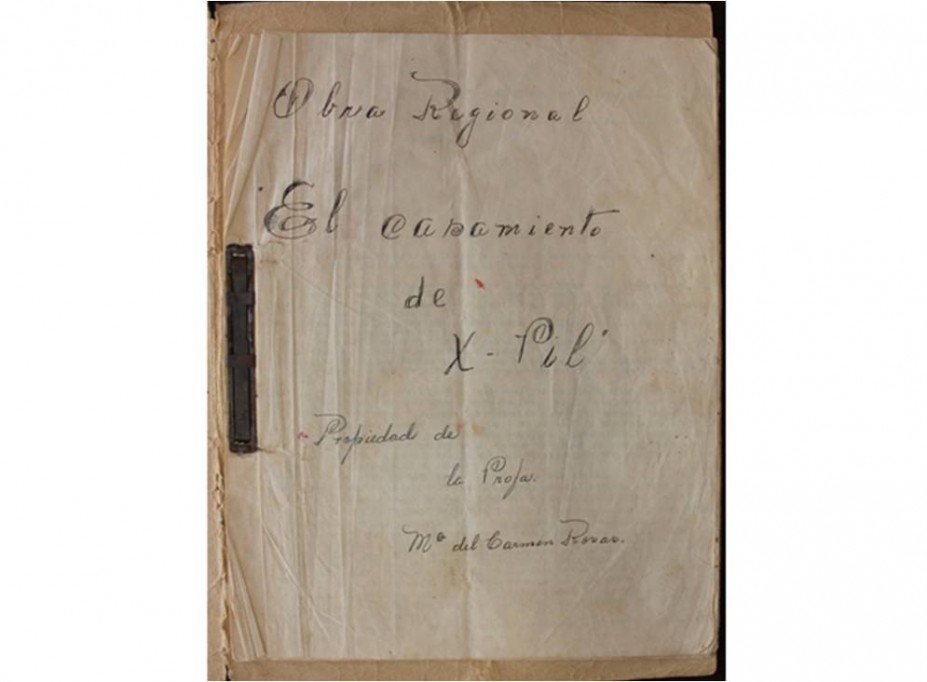 Obra Regional
"El casamiento
de
X-Pil"
Propiedad de
la Profa.
Mª del Carmen Rosas.